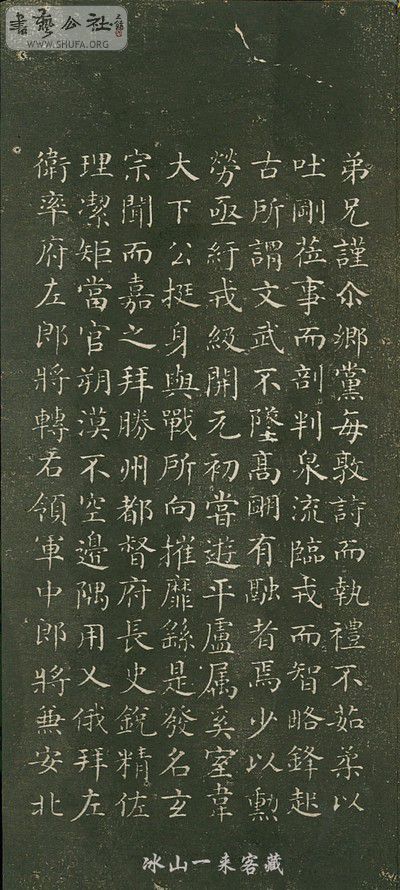 書藝公社
WWW.SHUFA.ORG
弟兄謹尒鄉黨每敦詩而執禮不茹柔以
吐剛莅事而剖判泉流臨戎而智略鋒起
古所謂文武不墜高朙有融者焉少以勲
勞亟紆戎級開元初嘗遊平盧属奚室韋
大下公挺身與戰所向摧靡繇是發名玄
宗聞而嘉之拜勝州都督府長史銳精佐
理潔矩當官朔漠不空邊隅用乂俄拜左
衛率府左郎將轉右領軍中郎將兼安北
冰山一来客藏